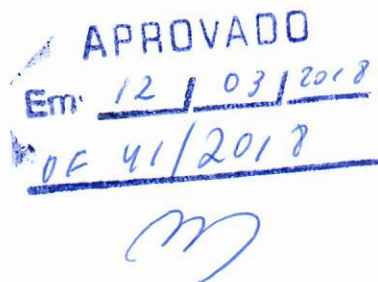 APROVADO
Em: 12 / 03 / 2018
OF 41/2018